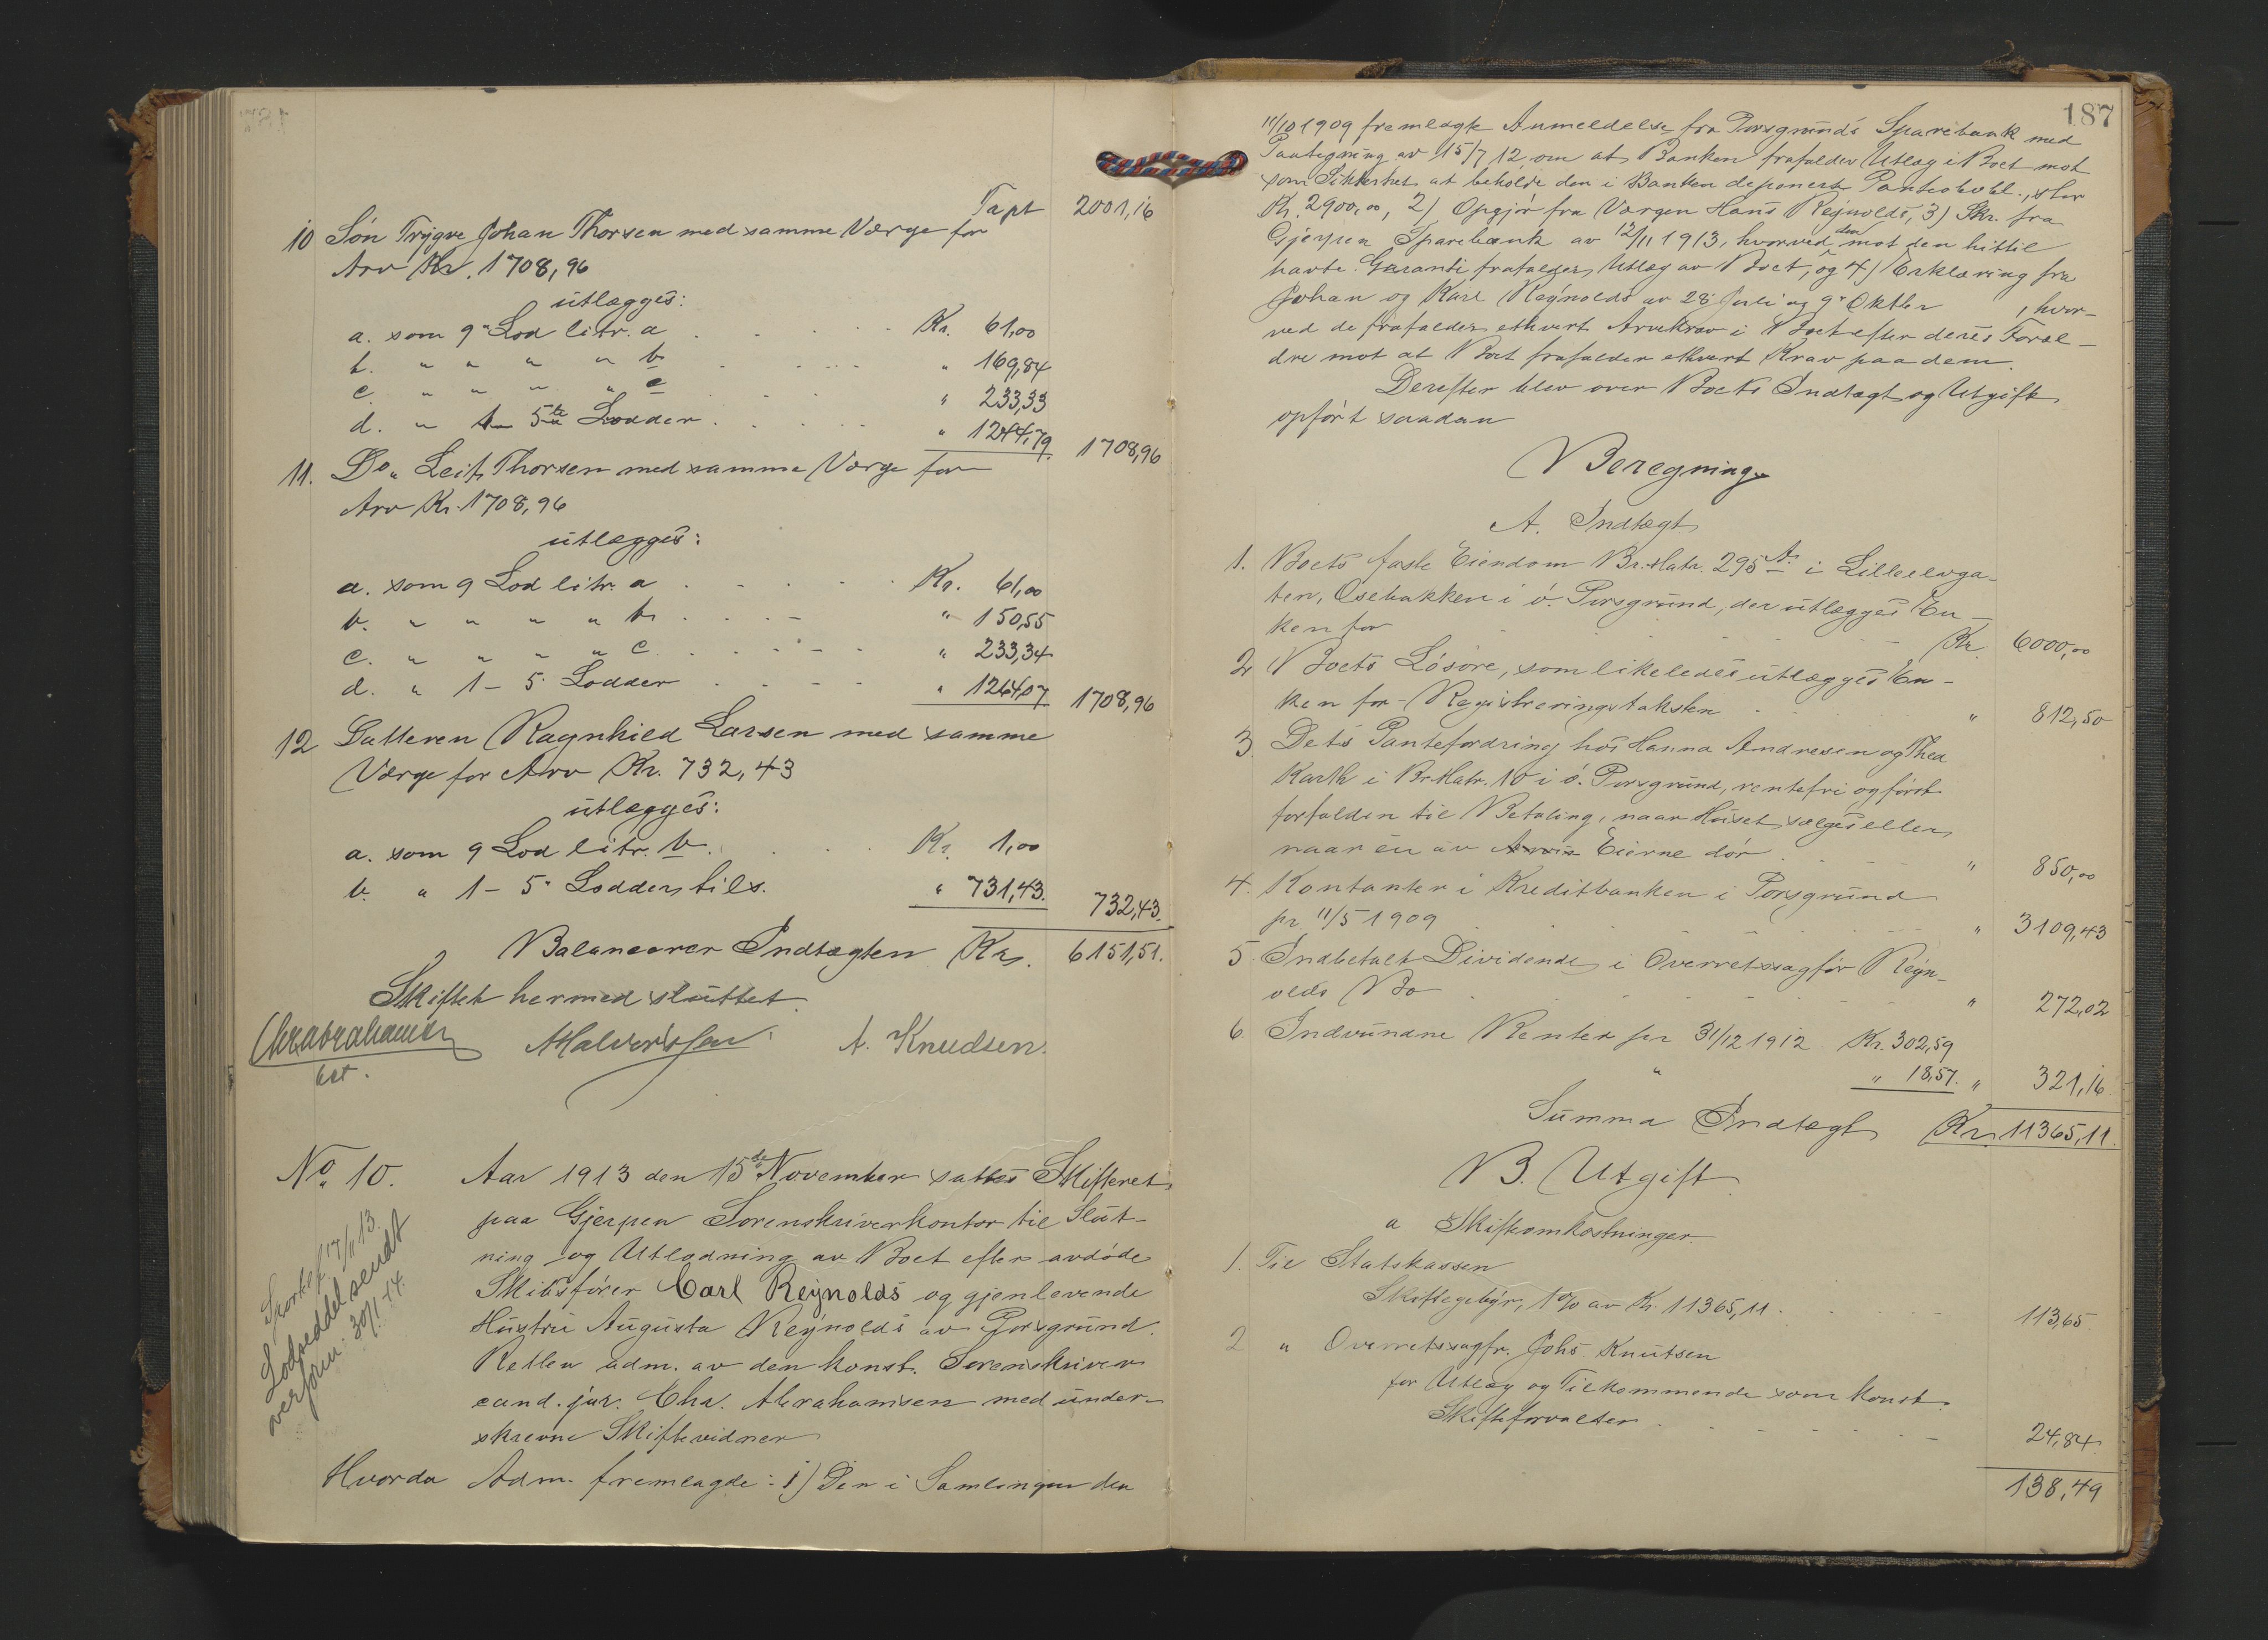 Trpt 2001,16
10 Søn Trygve Johan Thorsen med samme Værge for
Arv Kr. 1708,96
utlægges:
a. som 9" Lod litr. a Kr. 61,00
b. " " " " b " 169,84
c. " " " " c " 233,33
d. " 1 - 5te Lodder " 1244,79. 1708,96
11. Do. Leif Thorsen med samme Værge for
Arv Kr. 1708,96
utlægges:
a. som 9 Lod litr. a Kr. 61,00
b. " " " " b " 150,55
c. " " " " c " 233,34
d. " 1 - 5. Lodder " 1264,07 1708,96
12 Datteren Ragnhild Larsen med samme
Værge for Arv Kr. 732,43
utlægges:
a. som 9 Lod litr. b. Kr. 1,00
b. " 1 - 5" Lodder tils. " 731,43. 732,43.
Balancerer Indtægten Kr. 6151,51.
Skiftet hermed sluttet.
Chr Abrahamsen
cst.
A Halvorsen A. Knudsen.
No. 10. Aar 1913 den 15de November sattes Skifteret
paa Gjerpen Sorenskriverkontor til Slut-
ning og Utlodning av Boet efter avdøde
Skibsfører Carl Reynolds og gjenlevende
Hustru Augusta Reynolds av Porsgrund.
Retten adm. av den konst. Sorenskriver
cand. jur. Chr. Abrahamsen med under-
skrevne Skiftevidner
Hvorda Adm. fremlagde: 1) Den i Samlingen den
17/11 13.
Lodseddel sendt
overform. 30/1 14.
187
11/10 1909 fremlagte Anmeldelse fra Porsgrunds Sparebank med
Paategning av 15/7 12 om at Banken frafalder Utlæg i Boet mot
som Sikkerhet at beholde den i Banken deponerte Panteobl., stor
Kr. 2900,00, 2) Opgjør fra Værgen Hans Reynolds, 3) Skr. fra
Gjerpen Sparebank av 12/11 1913, hvorved den mot den hittil
havte Garanti frafalder Utlæg av Boet, og 4) Erklæring fra
Johan og Karl Reynolds av 28 Juli og 9" Oktbr , hvor-
ved de frafalder ethvert Arvekrav i Boet efter deres Foræl-
dre mot at Boet frafalder ethvert Krav paa dem.
Derefter blev over Boets Indtægt og Utgift
opført saadan
Beregning
A. Indtægt
1. Boets faste Eiendom Br. Matr. 295 A. i Lilleelvga-
ten, Osebakken i ø. Porsgrund, der utlægges En-
ken for Kr. 6000,00
2 Boets Løsøre, som likeledes utlægges En-
ken for Registreringstaksten " 812,50
3. Dets Pantefordring hos Hanna Andresen og Thea
Karth i Br. Matr. 10 i ø. Porsgrund, rentefri og først
forfalden til Betaling, naar Huset sælges eller
naar en av Eierne dør " 850,00
4. Kontanter i Kreditbanken i Porsgrund
pr. 11/5 1909 " 3109,43
5. Indbetalt Dividende i Overretssagfør Reyn-
olds Bo " 272,02
6 Indvundne Renter pr 31/12 1912 Kr. 302,59
" " 18,57. " 321,16
Summa Indtægt Kr. 11365,11.
B. Utgift
a Skifteomkostninger.
1. Til Statskassen
Skiftegebyr, 1% av Kr. 11365,11. 113,65.
2 " Overretssagfr. Johs. Knutsen
for Utlæg og Tilkommende som konst.
Skifteforvalter 24,84.
138,49